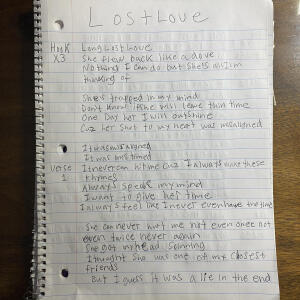 Lost Love
Hook Long Lost Love
X3 She flew back like a dove
Nothing I can do but she's all I'm
thinking of
She's trapped in my mind
Don't know if she will leave this time
One Day her I will outshine
Cuz her shot to my heart was misaligned
It was misaligned
It was mistimed
Verse 1 I never can hit me cuz I always make these
rhymes
Always speak my mind
I want to give her time
I always feel like I never even have the time
She can never hurt me not even once not
even twice never again
She got my head spinning
I thought she was one of my closest
friends
But I guess it was a lie in the end